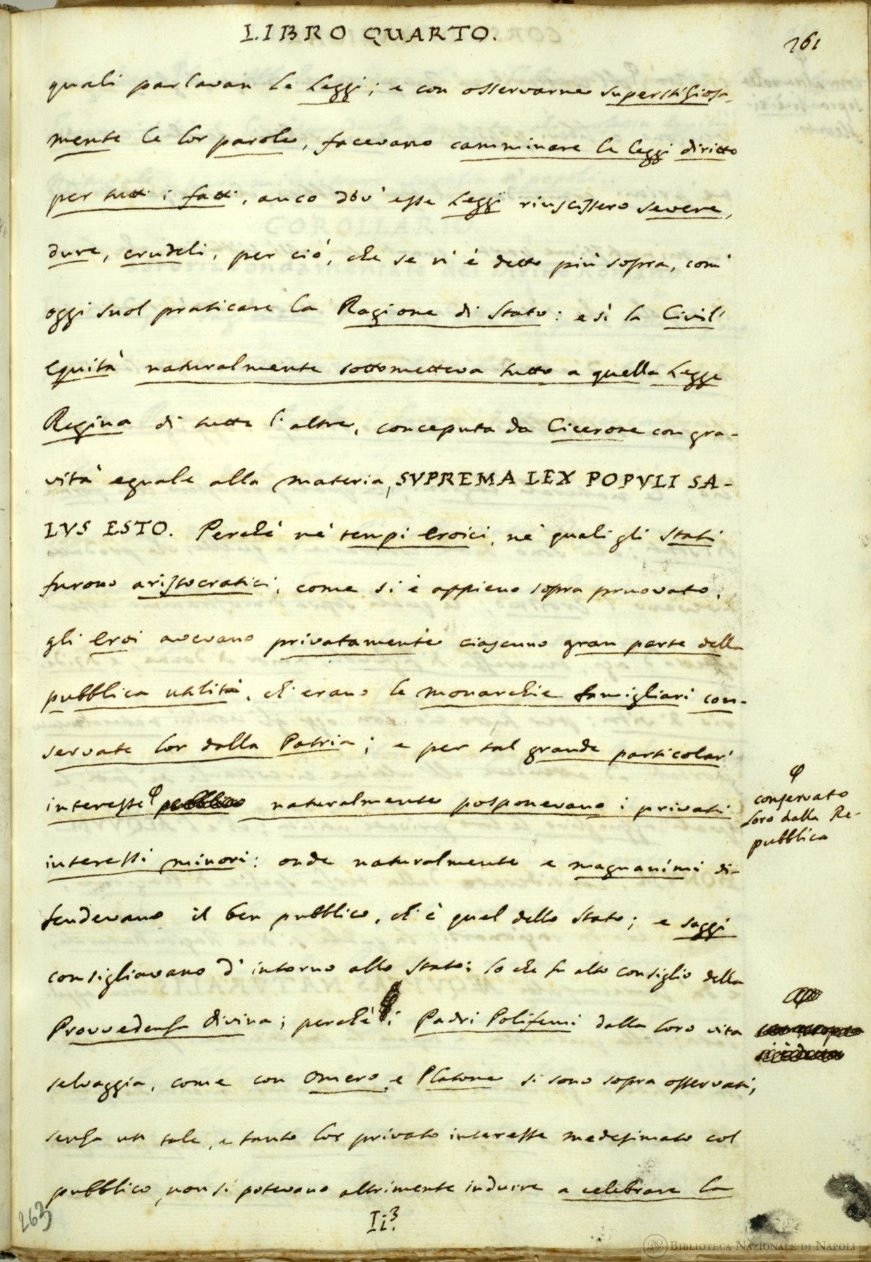 LIBRO QUARTO.
261
quali parlavan le Leggi; e con osservarne superstiziosa-
mente le lor parole, facevano camminare le leggi diritto
per tutti i fatti, anco dov' esse Leggi riuscissero severe,
dure, crudeli, per ciò, che se n' è detto più sopra, com'
oggi suol praticare la Ragione di Stato: e sì la Civil'
Equità naturalmente sottometteva tutto a quella Legge
Regina di tutte l' altre, conceputa da Cicerone con gra-
vità eguale alla materia, SVPREMA LEX POPVLI SA-
LVS ESTO. Perchè ne' tempi eroici, ne' quali gli Stati
furono aristocratici, come si è appieno sopra pruovato,
gli eroi avevano privatamente ciascuno gran parte della
pubblica utilità, ch' erano le monarchie famigliari con-
servate lor dalla Patria; e per tal grande particolar'
interesse φ naturalmente posponevano i privati
φ
conservato
loro dalla Re-
pubblica
interessi minori: onde naturalmente e magnanimi di-
fendevano il ben pubblico, ch' è quel dello Stato; e saggi
consigliavano d' intorno allo Stato: lo che fu alto consiglio della
Provvedenza divina; perchè i Padri Polifemi dalla loro vita
selvaggia, come con Omero, e Platone si sono sopra osservati,
senza un tale, e tanto lor privato interesse medesimato col
pubblico, non si potevano altrimente indurre a celebrare la
Ii.3
263
BIBLIOTECA NAZIONALE DI NAPOLI